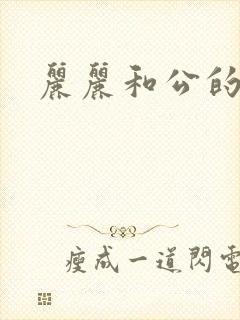 麗麗和公的
瘦成一道閃電